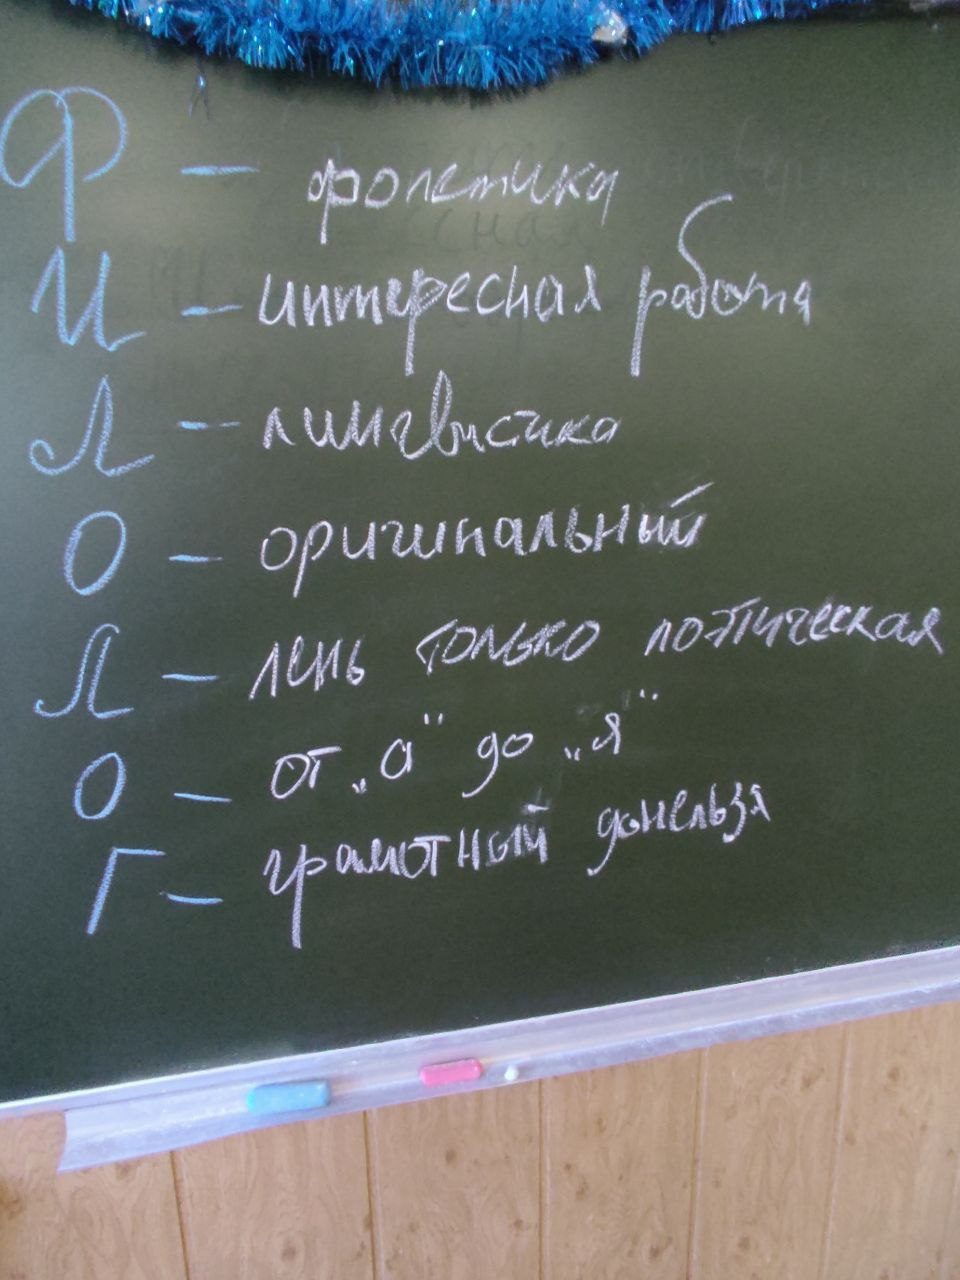 Ф – фонетика
И – интересная работа
Л – лингвистика
О – оригинальный
Л – лень только поэтическая
О – от „а" до „я"
Г – грамотный донельзя